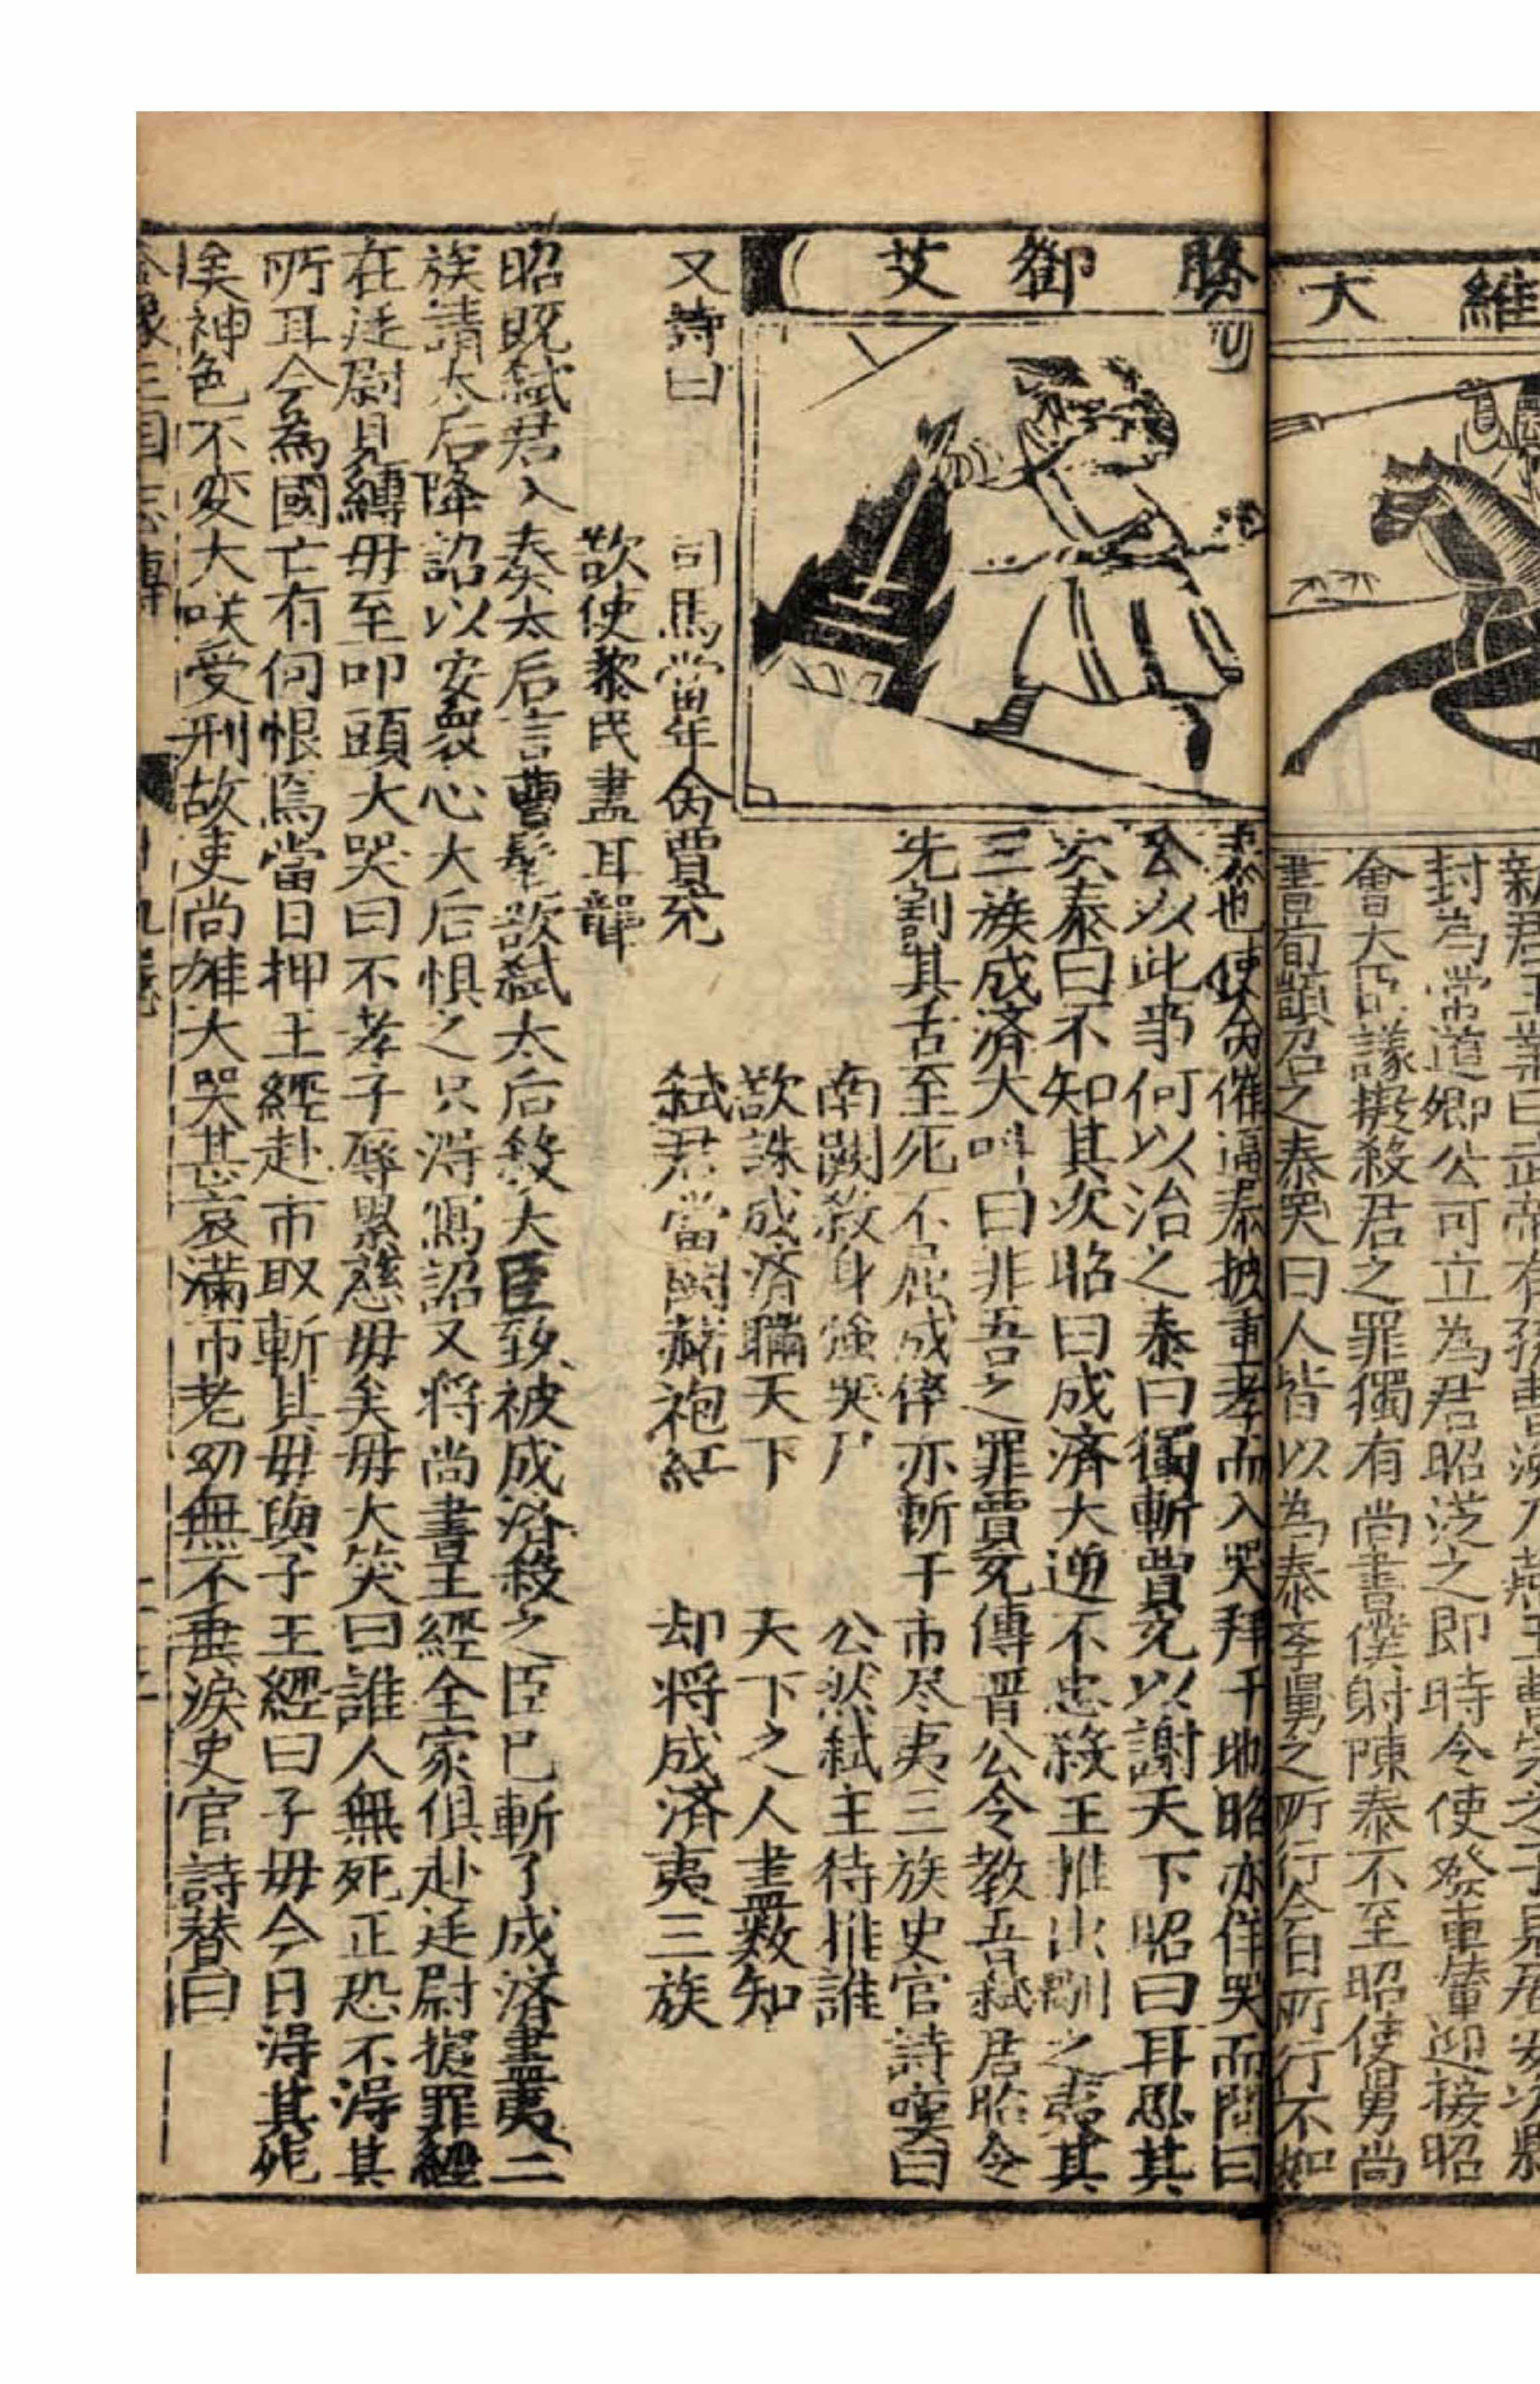 維大
新君王業曰武帝有孫曹渙乃燕王曹宇之子見居安次縣
封為常道郷公可立為君昭従之即時令使發車輦迎接昭
會大臣議擬殺君之罪獨有尚書僕射陳泰不至昭使舅尚
書荀顗召之泰哭曰人皆以為泰李舅之所行今日所行不如
勝鄧艾
泰也使人催逼泰披重孝而入哭拜于地昭亦佯哭而問曰
公以此事何以治之泰曰獨斬賈充以謝天下昭曰再思其
次泰曰不知其次昭曰成済大逆不忠殺王推出剮之夷其
三族成済大呌曰非吾之罪賈充傳晋公令教吾弑君昭令
先割其舌至死不屈成倅亦斬于市尽夷三族史官詩嘆曰
南闕殺身強哭尸 公然弑主待推誰
欲誅成済瞞天下 天下之人盡数知
又詩曰 司馬當年命賈充 弑君當闕赭袍紅 却将成済夷三族
欲使黎民盡耳聾
昭既弑君入奏太后言曹髦欲弑太后殺大臣致被成済殺之臣已斬了成済盡夷三
族請太后降詔以安衆心太后惧之只淂寫詔又将尚書王經全家俱赴廷尉擬罪經
在廷尉見縛母至叩頭大哭曰不孝子辱累慈母矣母大笑曰誰人無死正恐不淂其
所耳今為國亡有何恨焉當日押王經赴市取斬其母與子王經曰子母今日淂其死
矣神色不变大咲受刑故吏尚雄大哭甚哀滿市老幼無不垂淚史官詩替曰
全像三国志傳 十九卷